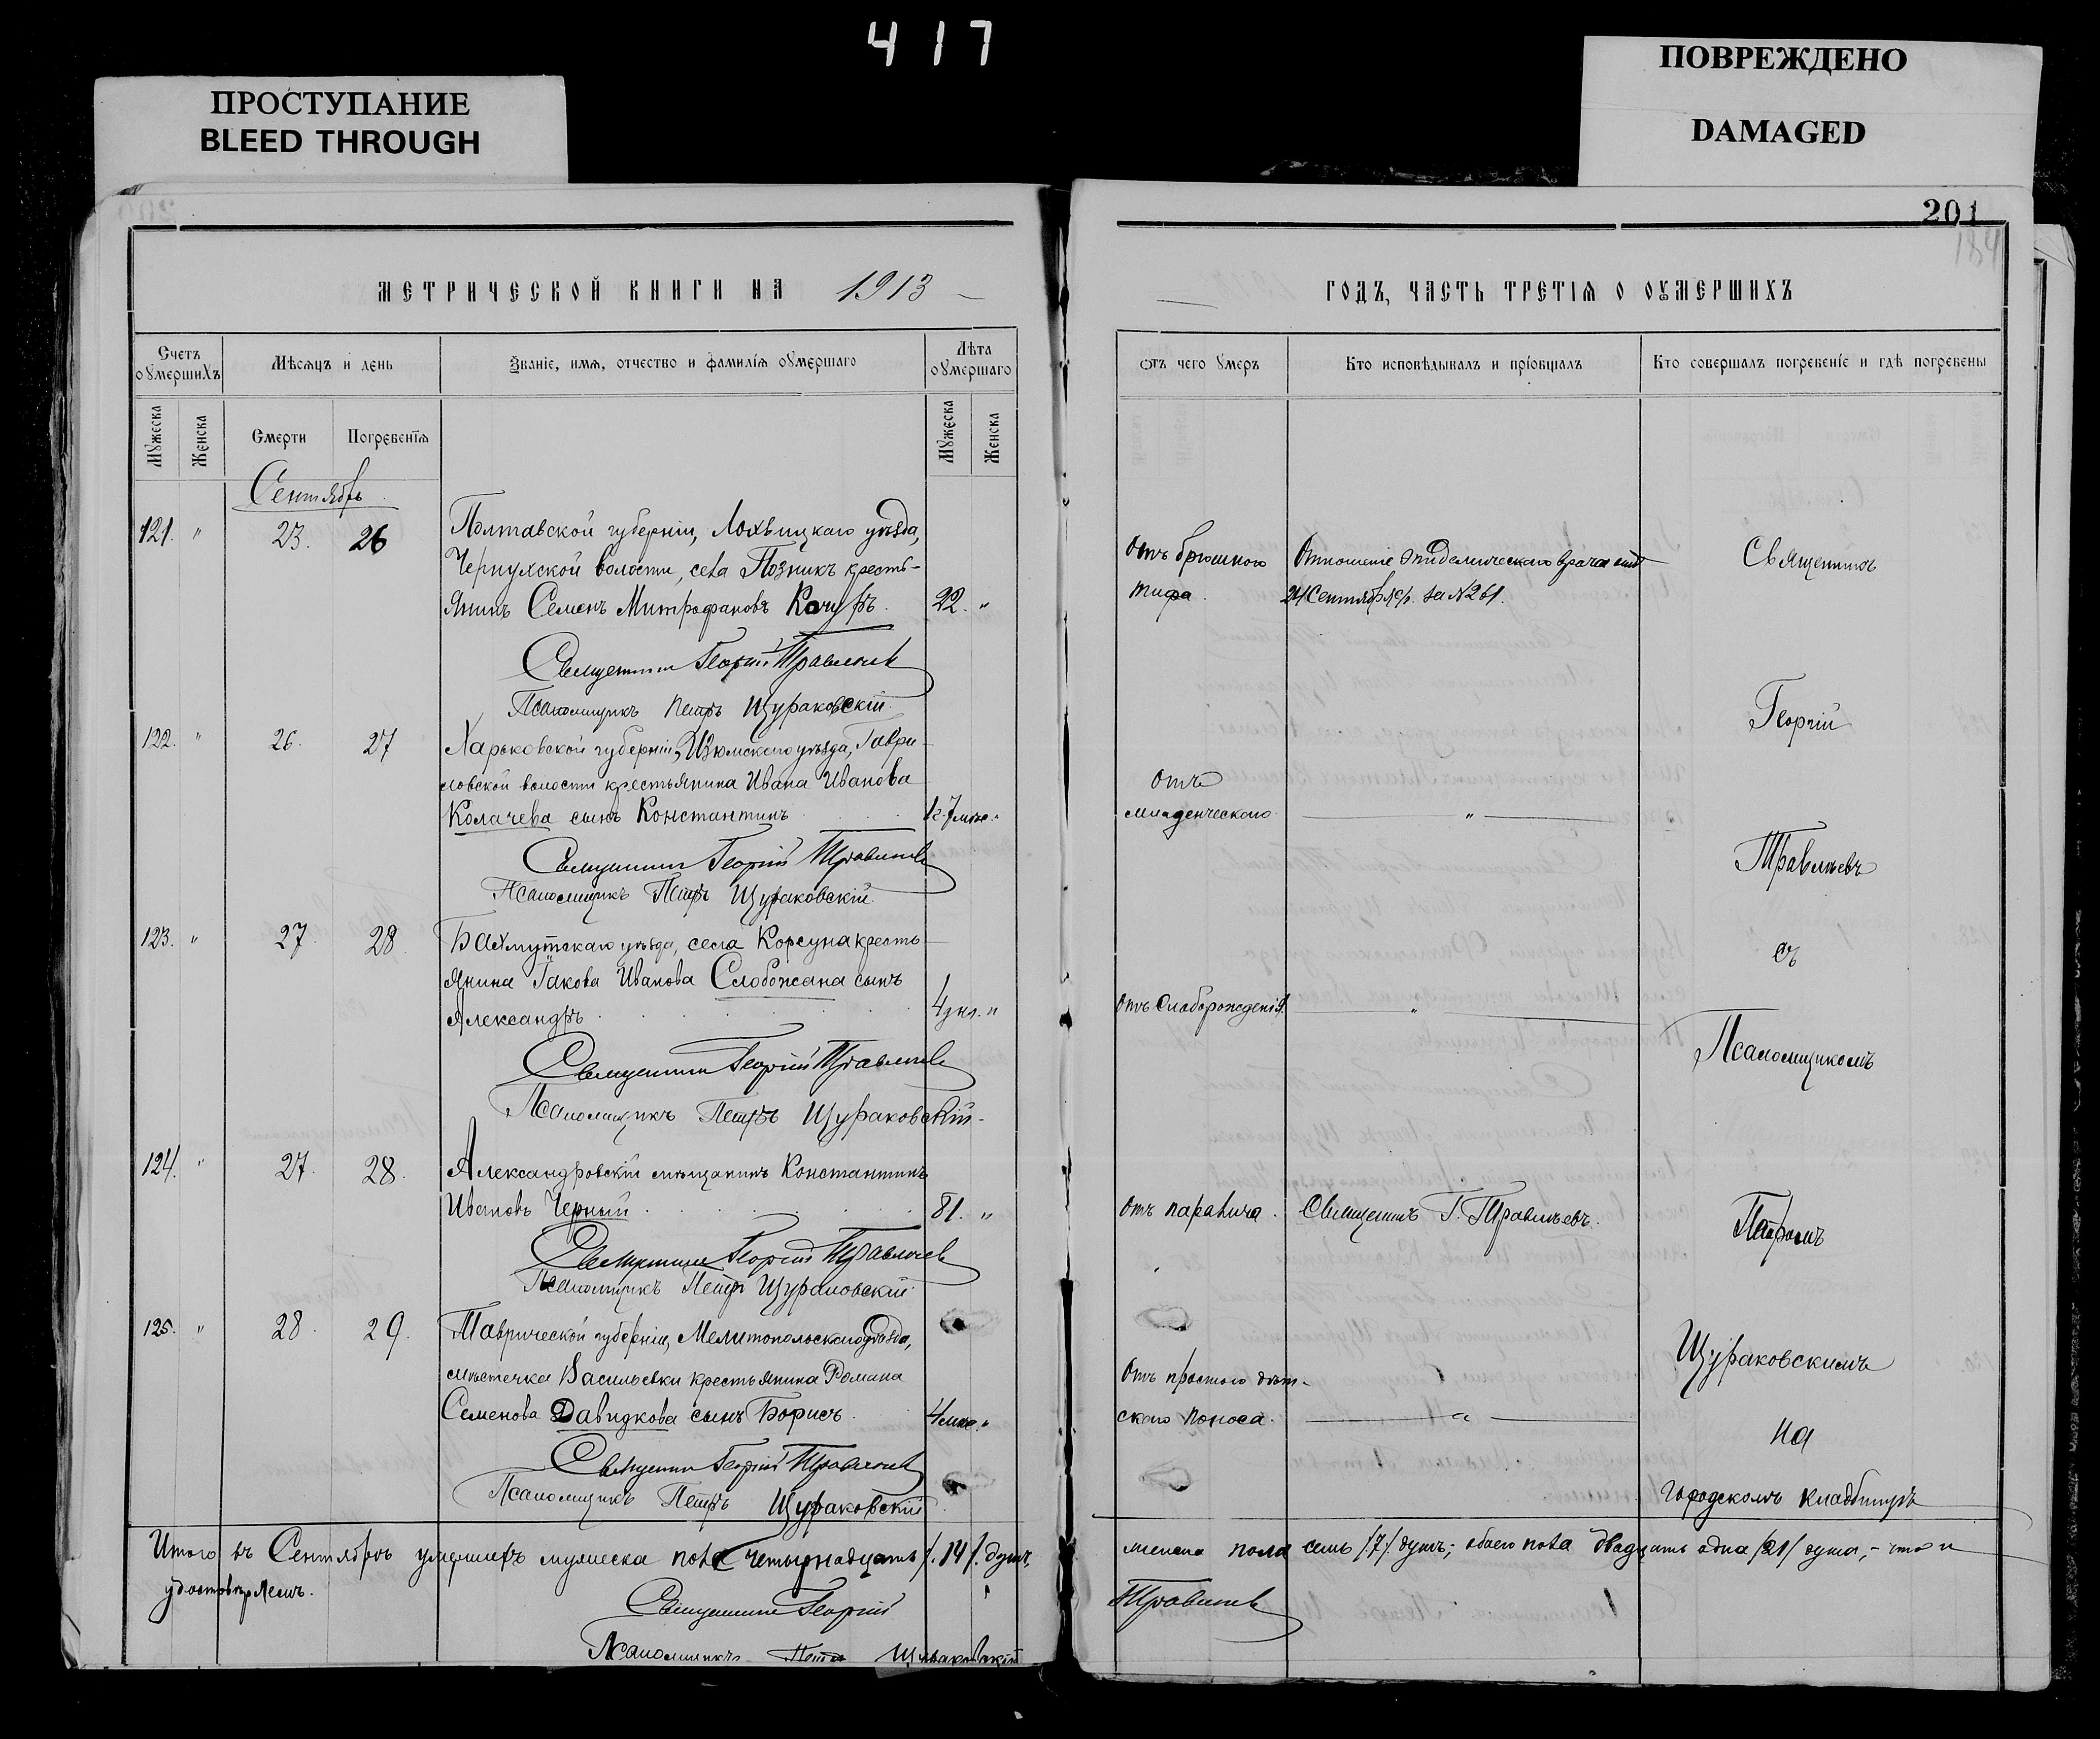 417
ПРОСТУПАНИЕ
BLEED THROUGH
ПОВРЕЖДЕНО
DAMAGED
201
184
МЕТРИЧЕСКОЙ КНИГИ НА 1913
ГОДЪ, ЧАСТЬ ТРЕТІЯ О ОУМЕРШИХЪ
Счетъ оумершихъ
Мѣсяцъ и день
Званіе, имя, отчество и фамилія оумершаго
Лѣта оумершаго
отъ чего умеръ
Кто исповѣдывалъ и пріобщалъ
Кто совершалъ погребеніе и гдѣ погребены
Мужеска
Женска
Смерти
Погребенія
Мужеска
Женска
Сентябрь
121. " 23. 26 Полтавской губерніи, Лохвицкаго уѣзда,
Чернухской волости, села Позникъ кресть-
янинъ Семенъ Митрофановъ Кочуръ. 22. "
Отъ брюшного
тифа.
Отношеніе эпидемическаго врача отъ
24 Сентября с/г. за №261.
Священникъ Георгій Травлѣевъ
Псаломщикъ Петръ Щураковскій.
122. " 26. 27 Харьковской губерніи, Изюмскаго уѣзда, Гаври-
ловской волости крестьянина Ивана Иванова
Колачева сынъ Константинъ 1г. 7 мѣс. "
Отъ
младенческаго "
Священникъ Георгій Травлѣевъ
Псаломщикъ Петръ Щураковскій.
123. " 27. 28 Бахмутскаго уѣзда, села Корсуна кресть-
янина Іакова Иванова Слобожана сынъ
Александръ 4 дн. "
Отъ слаборожденія "
Священникъ Георгій Травлѣевъ
Псаломщикъ Петръ Щураковскій.
124. " 27. 28. Александровскій мѣщанинъ Константинъ
Ивановъ Черный 81. "
Отъ паралича. Священникъ Г. Травлѣевъ.
Священникъ Георгій Травлѣевъ
Псаломщикъ Петръ Щураковскій
125. " 28. 29. Таврической губерніи, Мелитопольскаго уѣзда,
мѣстечка Васильевки крестьянина Романа
Семенова Давидкова сынъ Борисъ. 4 мѣс. "
Отъ простого дѣт-
скаго поноса. "
Священникъ Георгій Травлѣевъ
Псаломщикъ Петръ Щураковскій.
Священникъ
Георгій
Травлѣевъ
съ
Псаломщикомъ
Петромъ
Щураковскимъ
на
городскомъ кладбищѣ
Итого въ Сентябрѣ умершихъ мужеска пола четырнадцать /14/ душъ,
женска пола семь /7/ душъ; обоего пола двадцать одна /21/ душа, - что и
удостовѣряемъ.
Священникъ Георгій Травлѣевъ
Псаломщикъ Петръ Щураковскій